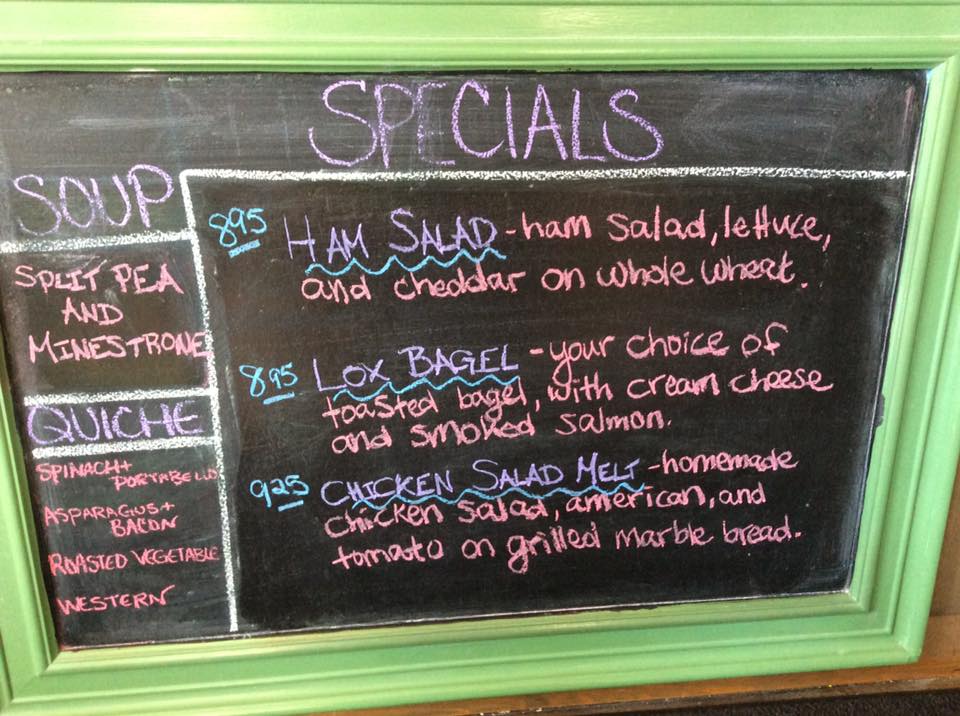 SPECIALS
SOUP
SPLIT PEA
AND
MINESTRONE
QUICHE
SPINACH+
PORTABELLO
ASPARAGUS+
BACON
ROASTED VEGETABLE
WESTERN
895 HAM SALAD - ham salad, lettuce,
and cheddar on whole wheat.
895 LOX BAGEL - your choice of
toasted bagel, with cream cheese
and smoked salmon.
925 CHICKEN SALAD MELT - homemade
chicken salad, american, and
tomato on grilled marble bread.